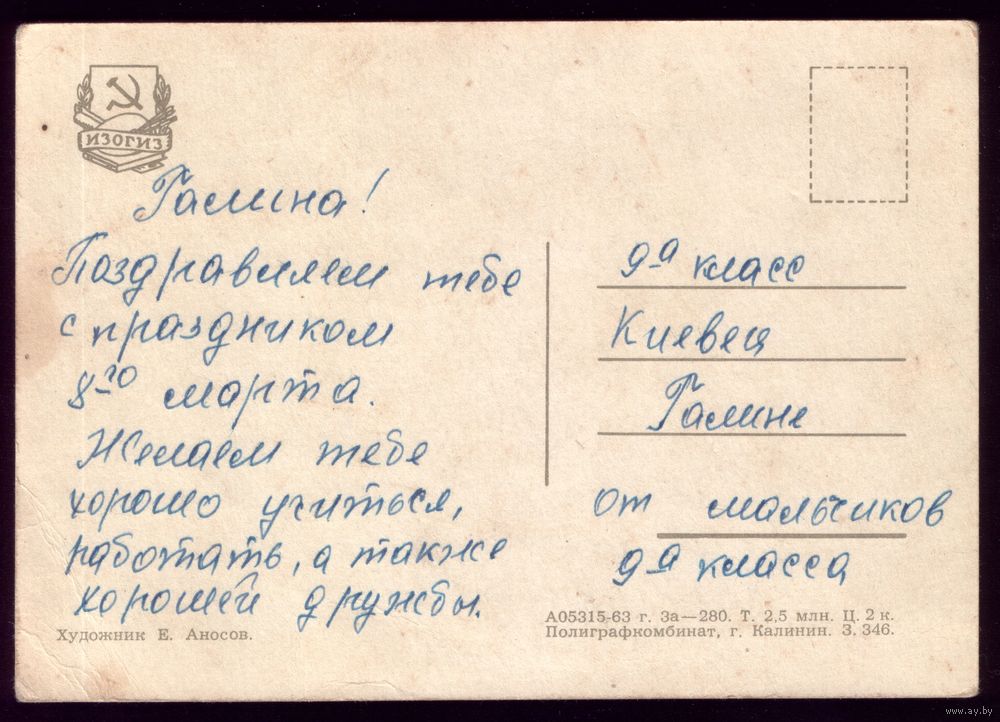 ИЗОГИЗ
Галина!
Поздравляем тебе
с праздником
8-го марта.
Желаем тебе
хорошо учиться,
работать, а также
хорошей дружбы.
Художник Е. Аносов.
9-а класс
Киевец
Галине
от мальчиков
9-а класса
А05315-63 г. За—280. Т. 2,5 млн. Ц. 2 к.
Полиграфкомбинат, г. Калинин. З. 346.
www.ay.by